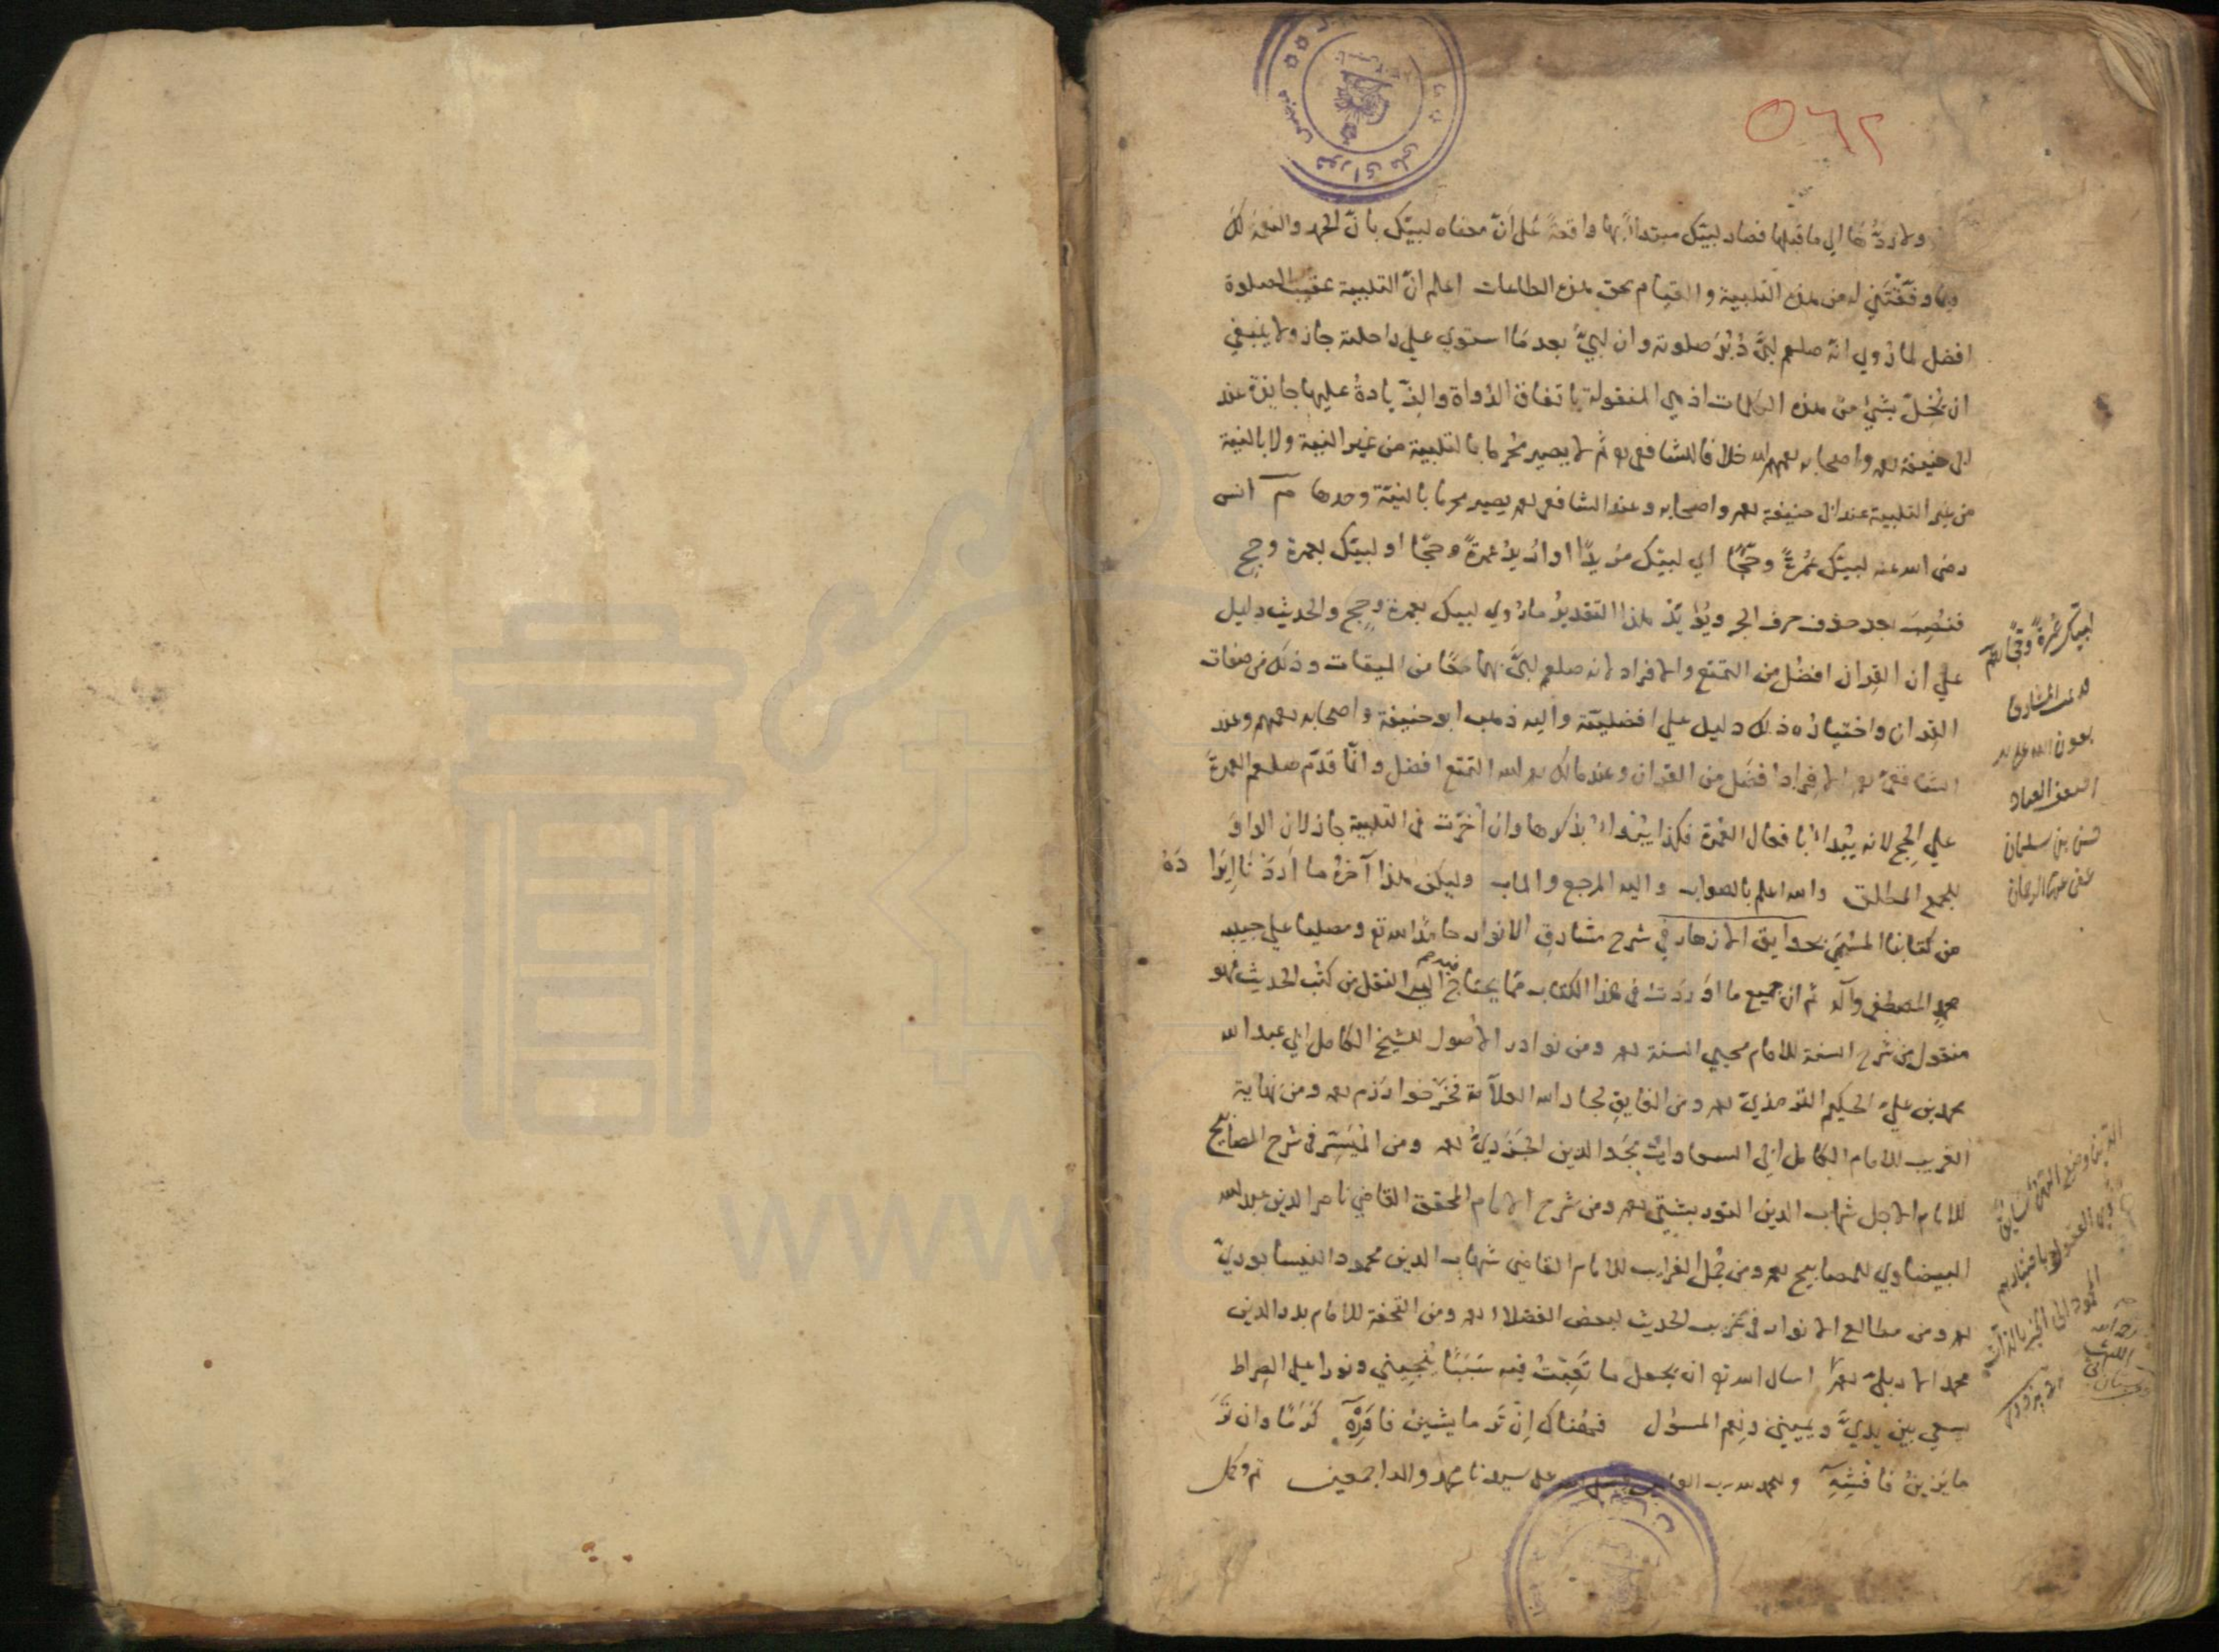 ٥٦٢
ولا ردّها الي ما قبلها فصار لبيّك مبتدأ بها واقعة علي انّ معناه لبيّك بانّ الحمد والنعمة لك
وفّقتني له من هذه التلبية والقيام بحق هذه الطاعات اعلم انّ التلبية عقيب الصلوة
افضل لما روي انه صلعم لبّي دُبُرَ صلوته وان لبيّ بعد ما استوي علي راحلته جاز ولا ينبغي
ان يُخِلّ بشئ من هذه الكلمات اذ هي المنقولة باتفاق الرُواة والزّيادةُ عليها جايزة عند
ابي حنيفة رحمه واصحابه رحمهم الله خلافا للشافعي رحمه ثُم لا يصير مُحرِما بالتلبية من غير النية ولا بالنية
من غير التلبية عند ابي حنيفة رحمه واصحابه وعند الشافعي رحمه يصير محرما بالنيّة وحدها م انس
رضي الله عنه لبيّك عُمْرةً وحَجًّا اي لبيّك مُريدًا او اُريدُ عمرةً وحجًّا او لبيّك بعمرة وحج
فنُصِبَ بعد حذف حرف الجر ويُؤيّد هذا التقديرُ ما رُوي لبيك بعمرة وحجٍ والحديث دليل
علي ان القِران افضل من التمتع والافراد لانه صلعم لبيَّ بهما معًا من الميقات وذلك من صفات
القِران واختيارُه ذلك دليل علي افضليته واليه ذهب ابو حنيفة واصحابه رحمهم وعند
الشافعيّ رحمه الافراد افضل من القران وعند مالك رحمه الله التمتع افضل وانّما قدّم صلعم العمرةَ
علي الحج لانه يبُدأ بافعال العُمرة فكذا يبُدأ بذكرها وان أخّرت في التلبية جاز لان الواوَ
للجمع المطلق والله اعلم بالصواب واليه المرجع والماب وليكن هذا آخرُ ما أردْنا ايرا دَهُ
من كتابنا المسُمَّي بحدايق الازهار في شرح مشارق الانوار حامدًا لله تع ومصليا علي حبيبه
محمدٍ المصطفي وآله ثم ان جميع ما اوردتُ في هذا الكتاب مّما يحتاج فيه الي النقل من كتب الحديث فهو
منقول من شرح السنة للامام محيي السنة رحمه ومن نوادر الاصُول للشيخ الكامل ابي عبد الله
محمد بن عليّ الحكيم الترمذيّ رحمه ومن الفايق لجار الله العلاّمة فخر خوارزم رحمه ومن نهاية
الغريب للامام الكامل ابي السعادات مجَد الدين الجَزَريُّ رحمه ومن المُيَسّر في شرح المصابيح
للامام الاجل شهاب الدين التوربشتي رحمه ومن شرح الامام المحقق القاضي ناصر الدين عبد الله
البيضاوي للمصابيح رحمه ومن جُمل الغرايب للامام القاضي شهاب الدين محمود النيسابوريّ
رحمه ومن مطالع الانوار في غريب الحديث لبعض الفضلاء رحمه ومن التحفة للامام بدر الدين
محمد الاربليّ رحمه اسال الله تع ان يجعل ما تَعِبْتُ فيه سَبَبًا يُنجيني ونورا علي الصراط
يسعي بين يديَّ ويميني ونِعم المسؤل فمعُناك اِنْ تَرَ ما يشينُ فاقْرِهِ كَرَمًا وان تَرَ
ما يَزينُ فافْشِهِ والحمد لله رب العالمين وصلي الله علي سيدنا محمد واله اجمعين تم وكمل
لبيّك عُمرةً وحجًّا
تمت المشارق
بعون الله
اضعف العباد
حسن بن سلمان